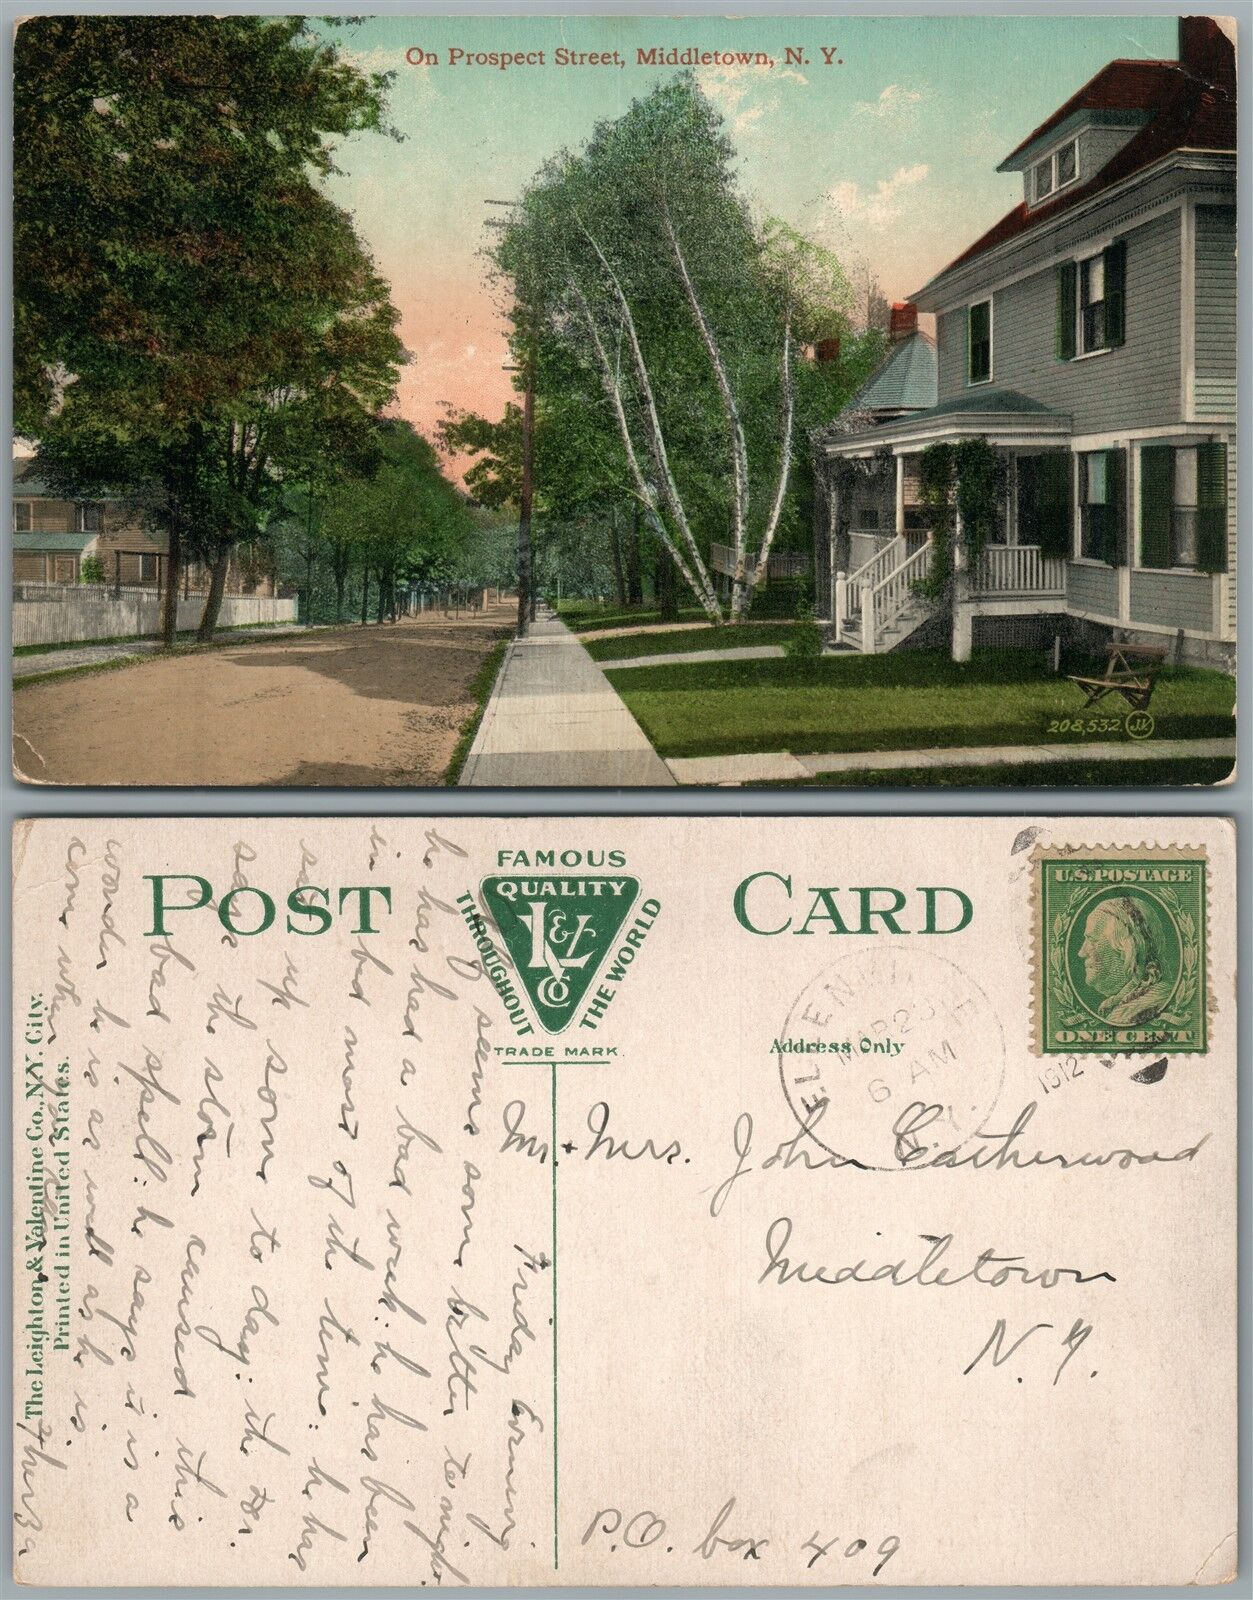 On Prospect Street, Middletown, N. Y.
208,532. JV
POST CARD
FAMOUS
QUALITY
THROUGHOUT
THE WORLD
K&L
Co
TRADE MARK.
U.S. POSTAGE
ONE CENT
ELLENVILLE
MAR 23
6 AM
N.Y.
1912
Address Only
Mr. + Mrs. John Catherwood
Middletown
N. Y.
P.O. box 409
Friday Evening
seems some better tonight
he has had a bad week: he has been
in bed most of the time: he has
sat up some to day: the Dr.
says the storm caused this
bad spell: he says it is a
wonder he is as well as he is.
come when you can
The Leighton & Valentine Co., N.Y. City.
Printed in United States.